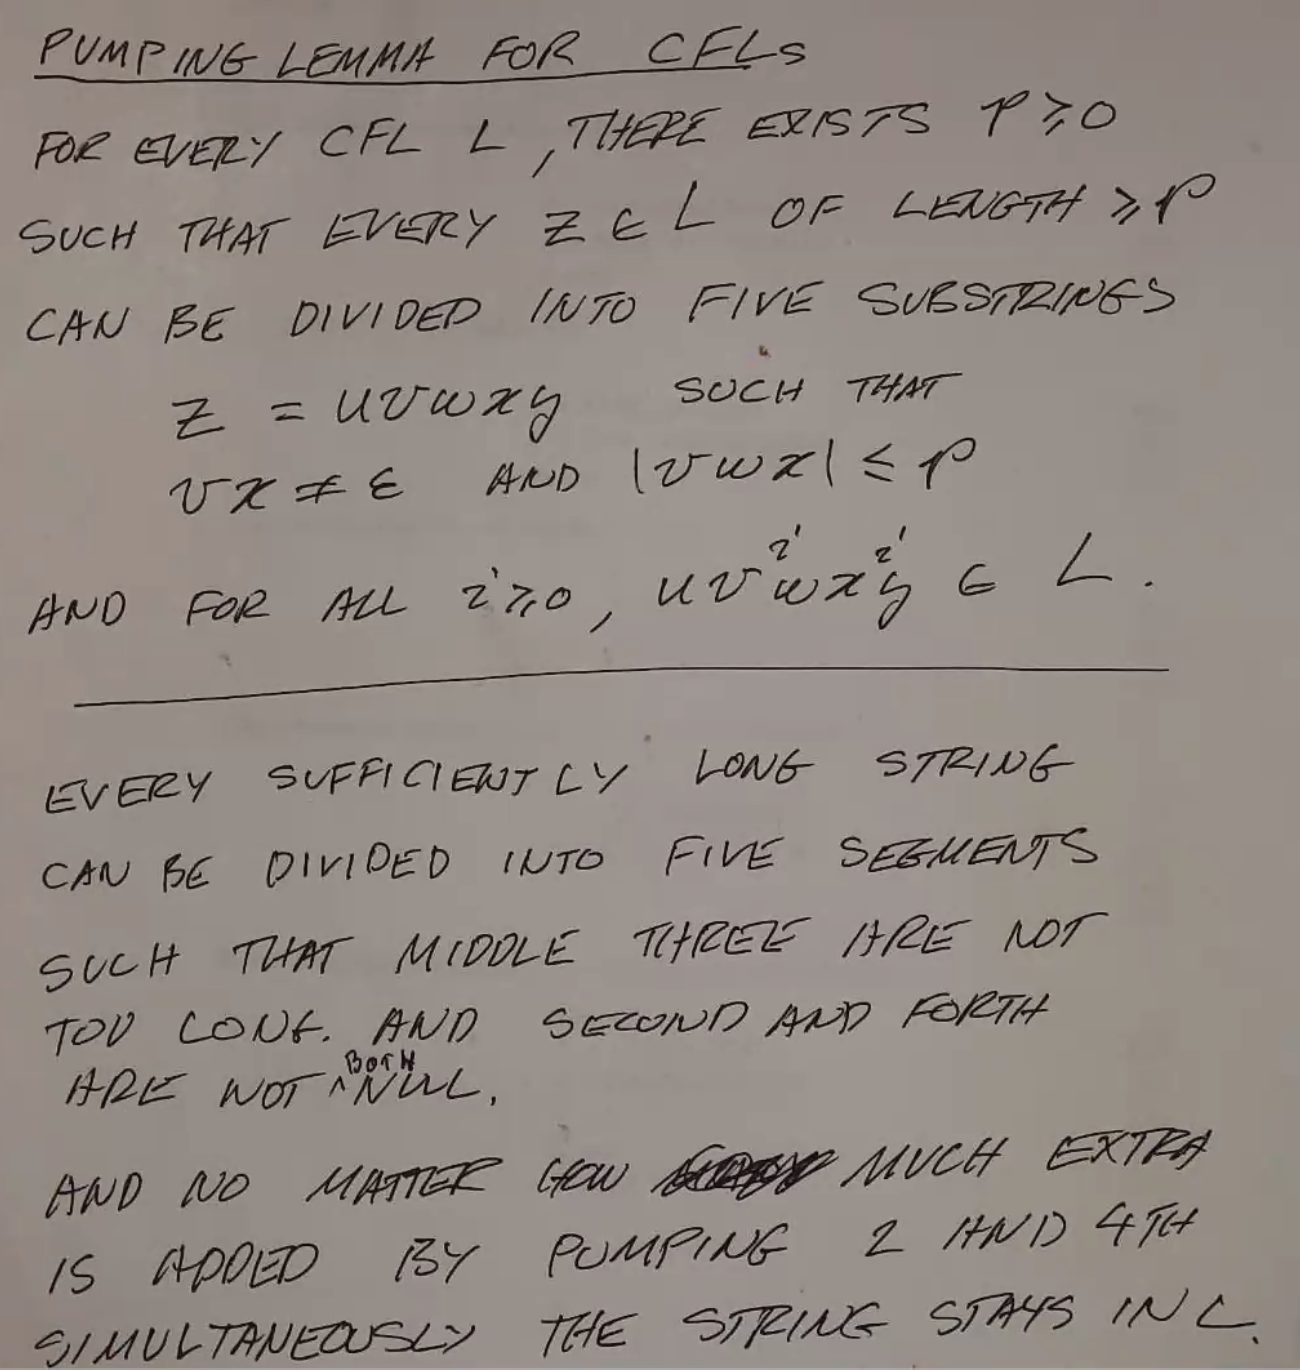 PUMPING LEMMA FOR CFLs
FOR EVERY CFL L, THERE EXISTS p ≥ 0
SUCH THAT EVERY z ∈ L OF LENGTH ≥ p
CAN BE DIVIDED INTO FIVE SUBSTRINGS
z = uvwxy SUCH THAT
vx ≠ ε AND |vwx| ≤ p
AND FOR ALL i ≥ 0, uvⁱwxⁱy ∈ L.
EVERY SUFFICIENTLY LONG STRING
CAN BE DIVIDED INTO FIVE SEGMENTS
SUCH THAT MIDDLE THREE ARE NOT
TOO LONG. AND SECOND AND FORTH
ARE NOT BOTH NULL.
AND NO MATTER HOW MUCH EXTRA
IS ADDED BY PUMPING 2 AND 4TH
SIMULTANEOUSLY THE STRING STAYS IN L.